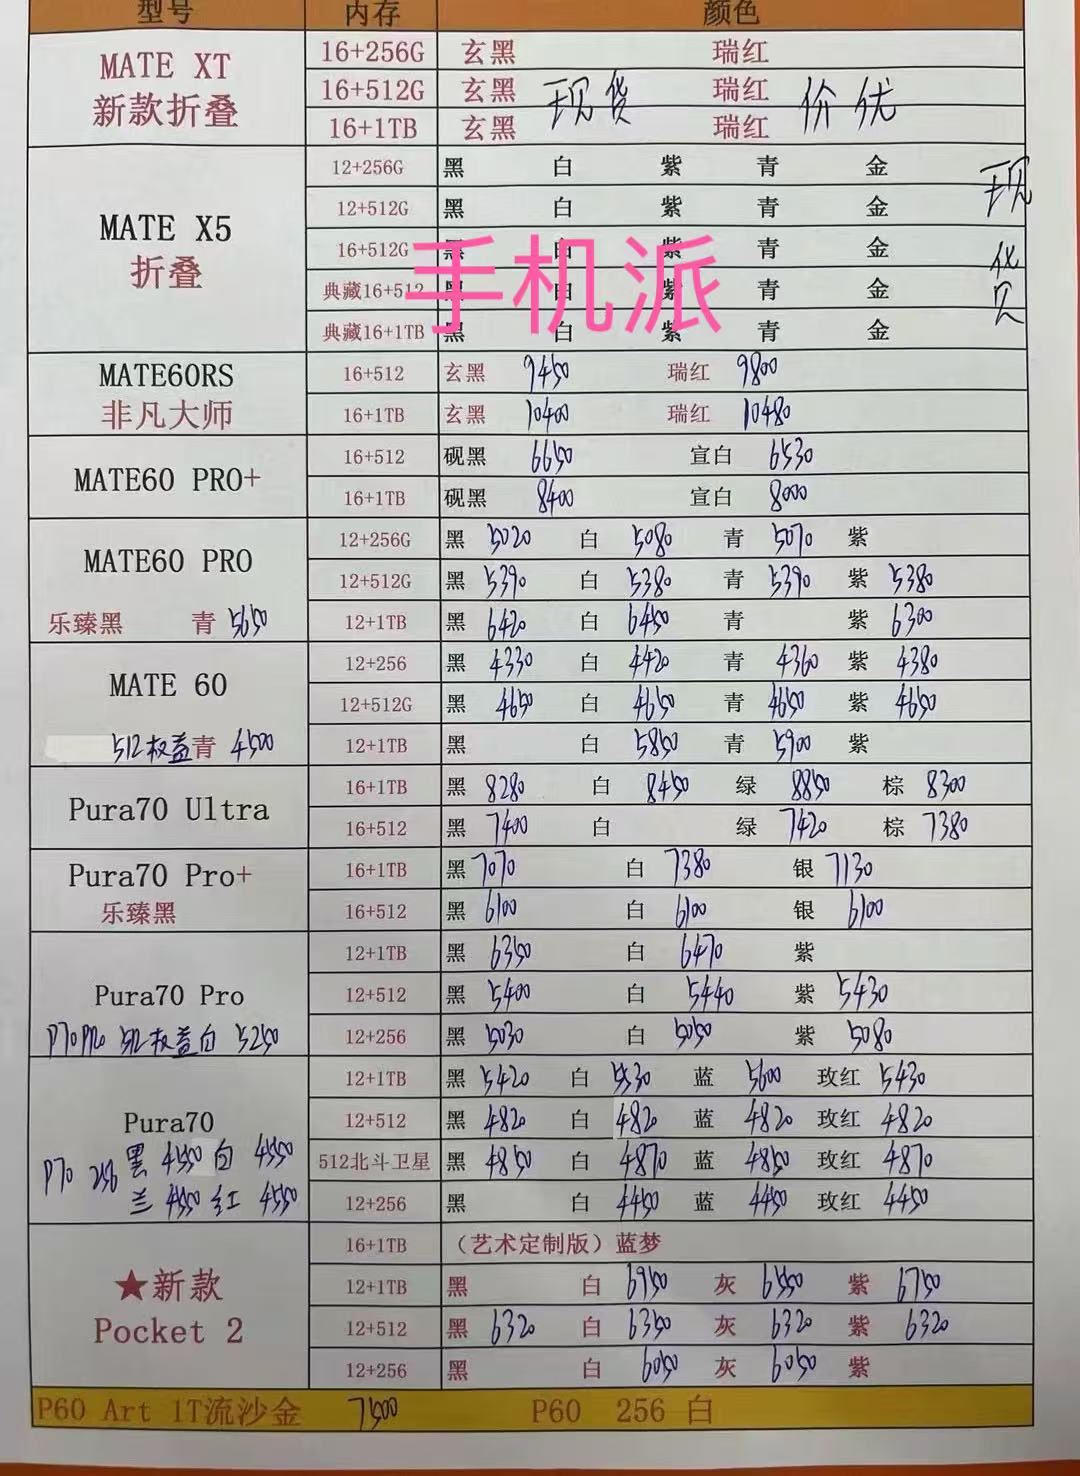 型号 内存 颜色
MATE XT 新款折叠
16+256G 玄黑 瑞红
16+512G 玄黑 现货 瑞红 价优
16+1TB 玄黑 瑞红
MATE X5 折叠 现
12+256G 黑 白 紫 青 金
12+512G 黑 白 紫 青 金
16+512G 黑 白 紫 青 金
典藏16+512 黑 白 紫 青 金
典藏16+1TB 黑 白 紫 青 金
手机派
MATE60RS 非凡大师
16+512 玄黑 9450 瑞红 9800
16+1TB 玄黑 10400 瑞红 10480
MATE60 PRO+
16+512 砚黑 6650 宣白 6530
16+1TB 砚黑 8400 宣白 8000
MATE60 PRO
乐臻黑 青 5650
12+256G 黑 5020 白 5080 青 5070 紫
12+512G 黑 5390 白 5380 青 5390 紫 5380
12+1TB 黑 6420 白 6450 青 紫 6300
MATE 60
512权益青 4500
12+256 黑 4330 白 4420 青 4360 紫 4380
12+512G 黑 4650 白 4650 青 4650 紫 4650
12+1TB 黑 白 5850 青 5900 紫
Pura70 Ultra
16+1TB 黑 8280 白 8450 绿 8850 棕 8300
16+512 黑 7400 白 绿 7420 棕 7380
Pura70 Pro+
乐臻黑
16+1TB 黑 7070 白 7380 银 7130
16+512 黑 6100 白 6100 银 6100
Pura70 Pro
P70Pro 512权益白 5250
12+1TB 黑 6350 白 6470 紫
12+512 黑 5400 白 5440 紫 5430
12+256 黑 5030 白 5050 紫 5080
Pura70
P70 256 黑 4350 白 4350
兰 4350 红 4550
12+1TB 黑 5420 白 5530 蓝 5600 玫红 5430
12+512 黑 4820 白 4820 蓝 4820 玫红 4820
512北斗卫星 黑 4850 白 4870 蓝 4850 玫红 4870
12+256 黑 白 4450 蓝 4450 玫红 4450
★新款
Pocket 2
16+1TB （艺术定制版）蓝梦
12+1TB 黑 白 6950 灰 6550 紫 6750
12+512 黑 6320 白 6350 灰 6320 紫 6320
12+256 黑 白 6050 灰 6050 紫
P60 Art 1T流沙金 7500 P60 256 白